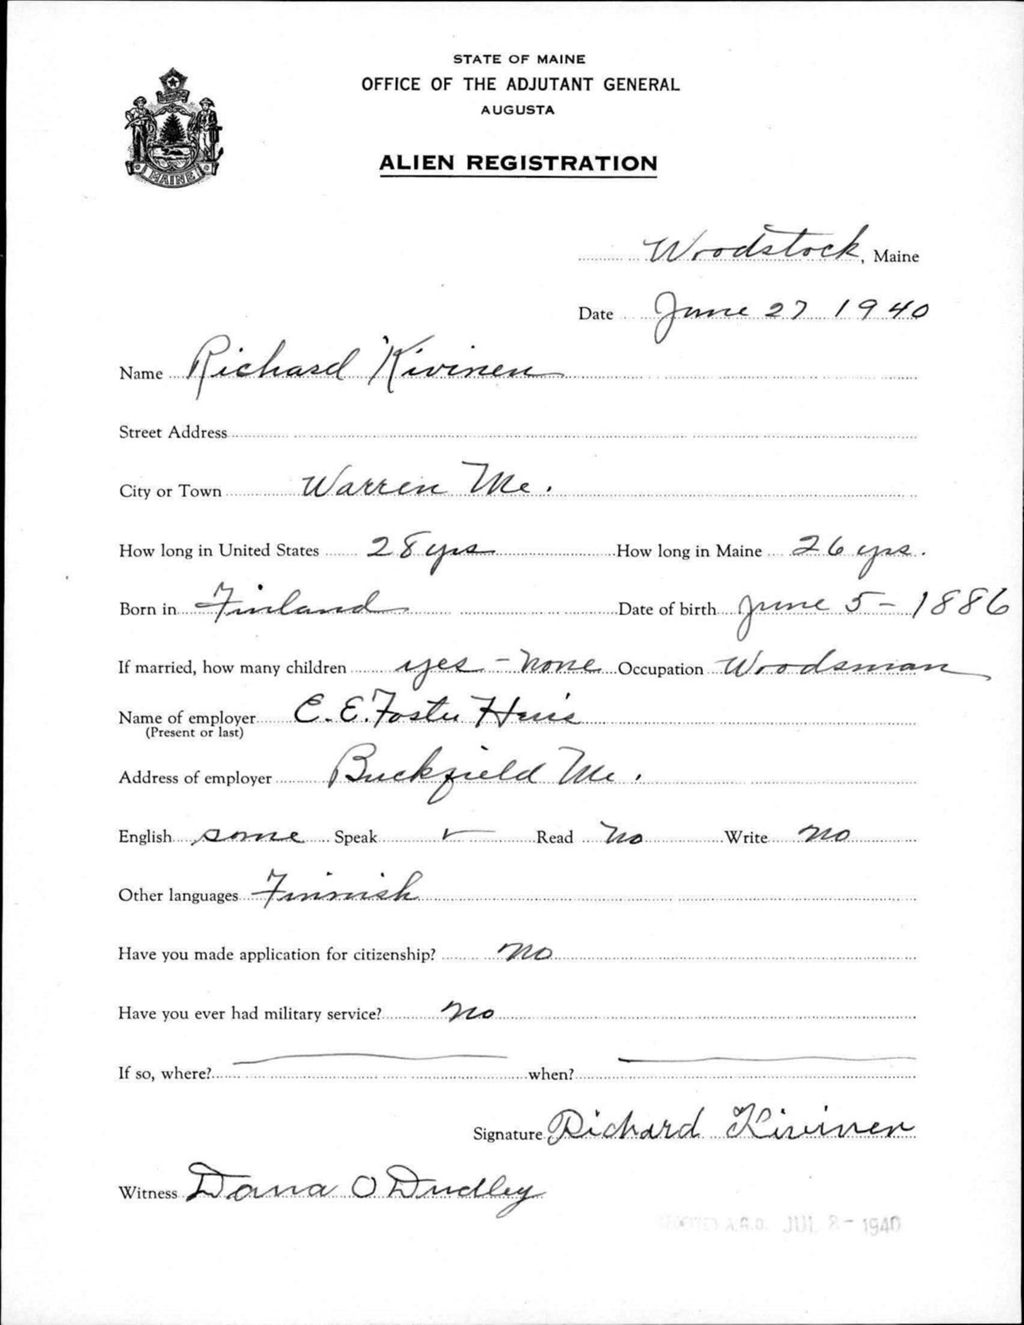 STATE OF MAINE
OFFICE OF THE ADJUTANT GENERAL
AUGUSTA
ALIEN REGISTRATION
MAINE
Woodstock, Maine
Date June 27 1940
Name Richard Kivinen
Street Address
City or Town Warren Me.
How long in United States 28 yrs How long in Maine 26 yrs.
Born in Finland Date of birth June 5 - 1886
If married, how many children yes - None Occupation Woodsman
Name of employer C. E. Foster
(Present or last)
Address of employer Buckfield Me.
English some Speak ✓ Read No Write No
Other languages Finnish
Have you made application for citizenship? No
Have you ever had military service? No
If so, where? when?
Signature Richard Kivinen
Witness Dana O Dudley
A.G.O. JUL 8 - 1940